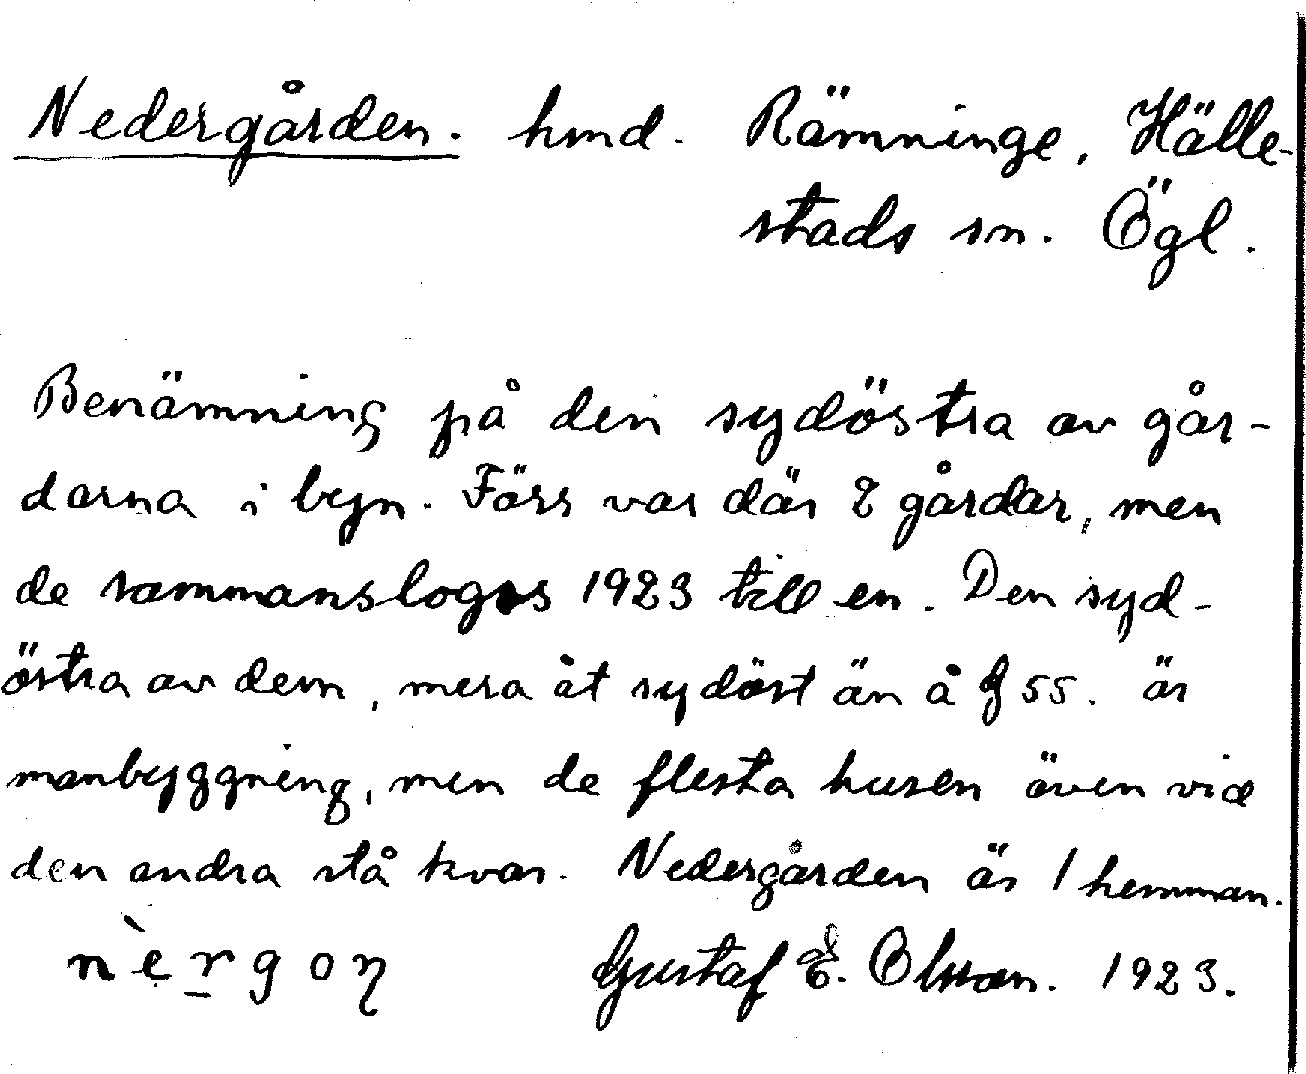 Nedergården. hmd. Rämninge, Hälle-
stads sn. Ögl.
Benämning på den sydöstra av går-
darna i byn. Förr var där 2 gårdar, men
de sammanslogos 1923 till en. Den syd-
östra av dem, mera åt sydöst än å 55. är
manbyggning, men de flesta husen även vid
den andra stå kvar. Nedergården är 1 hemman.
Gustaf E. Olsson. 1923.